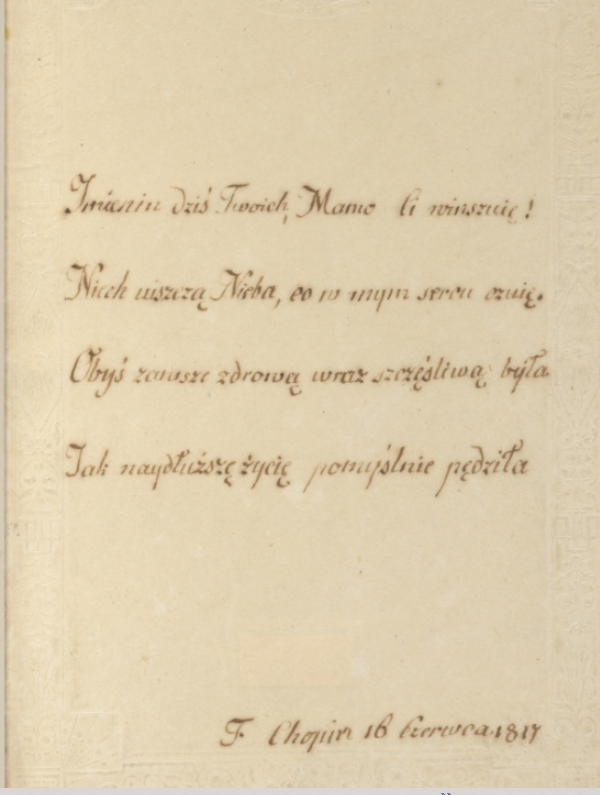 Imienin dziś Twoich, Mamo Ci winszuię!
Niech uiszczą Nieba, co w mym sercu czuię.
Obyś zawsze zdrową wraz szczęśliwą była
Jak naydłuższę życię pomyślnie pędziła
F Chopin 16 Czerwca 1817